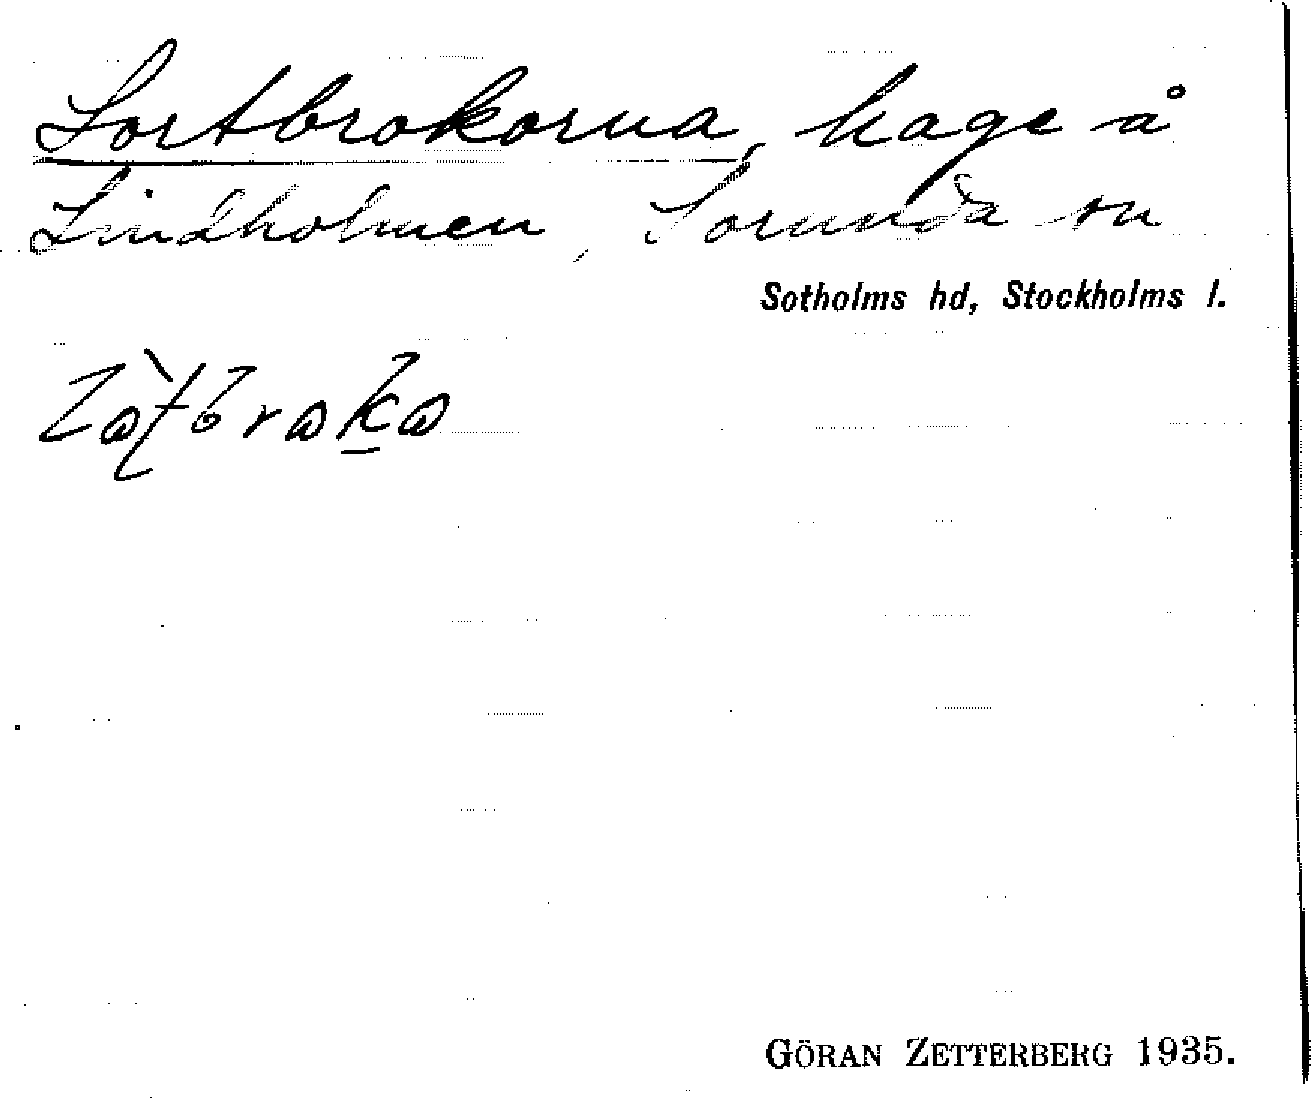 Lortbrokorna, hage å
Lindholmen, Sorunda sn
Sotholms hd, Stockholms l.
GÖRAN ZETTERBERG 1935.